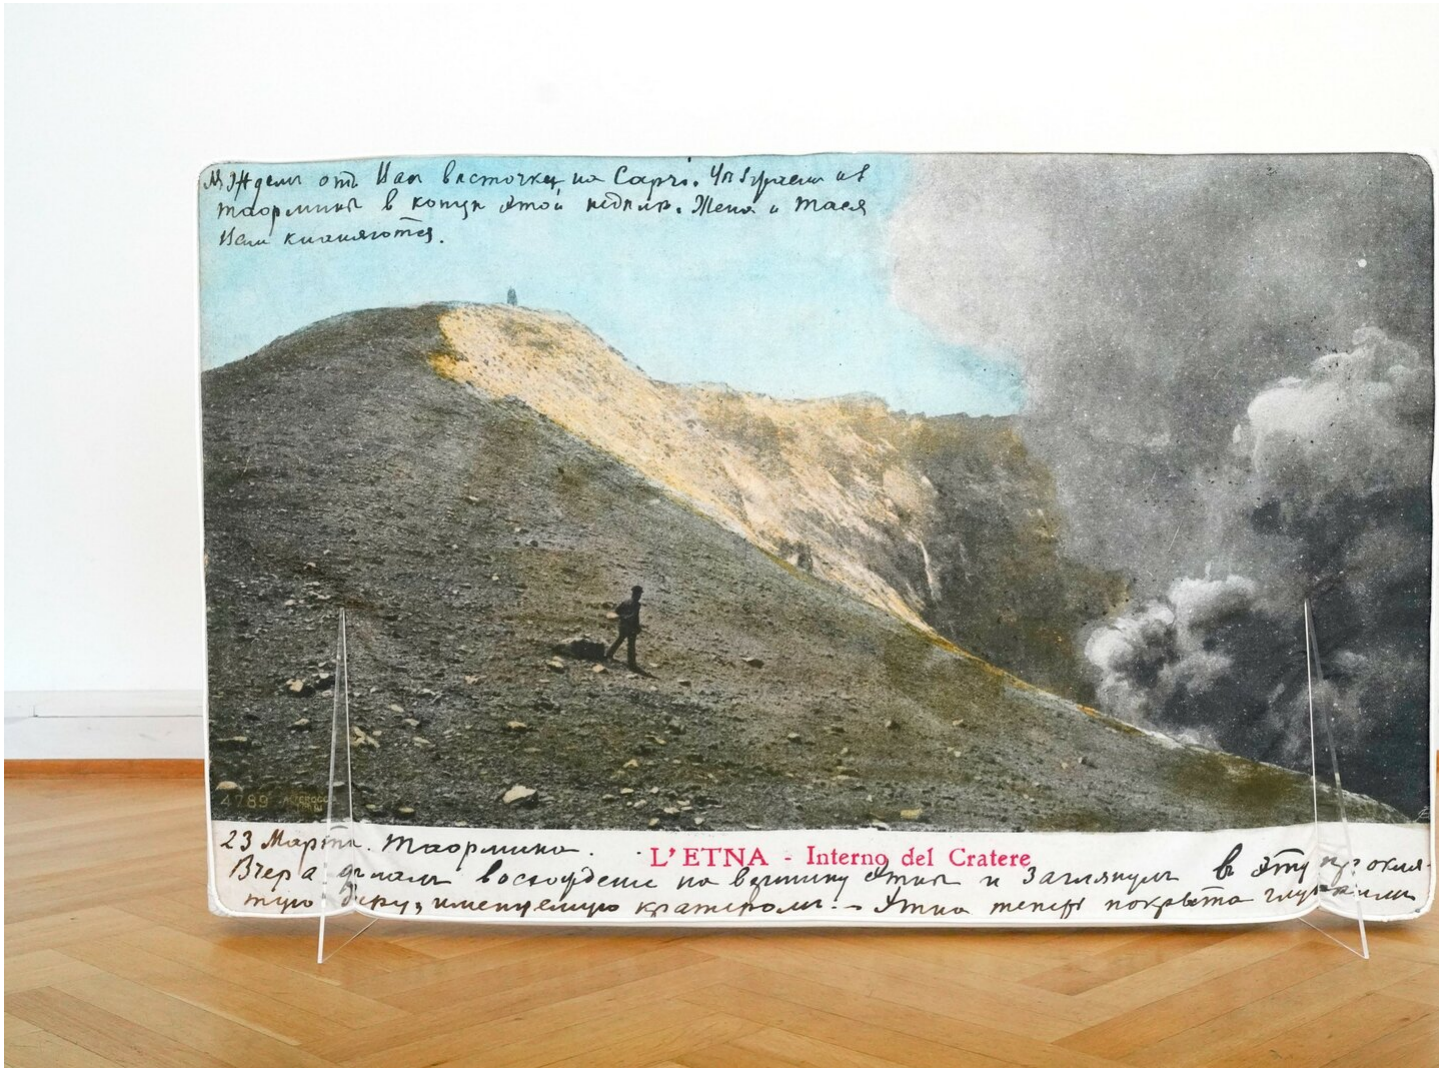 Ждем от Вас весточку на Capri.
Таормины в конце этой недели. Жена и Тася
Вам кланяются.
4789
23 Марта. Таормина.
L'ETNA - Interno del Cratere
Вчера делал восхождение на вершину Этны и заглянул в эту прокля-
тую дыру, именуемую кратером. - Этна теперь покрыта глубоким